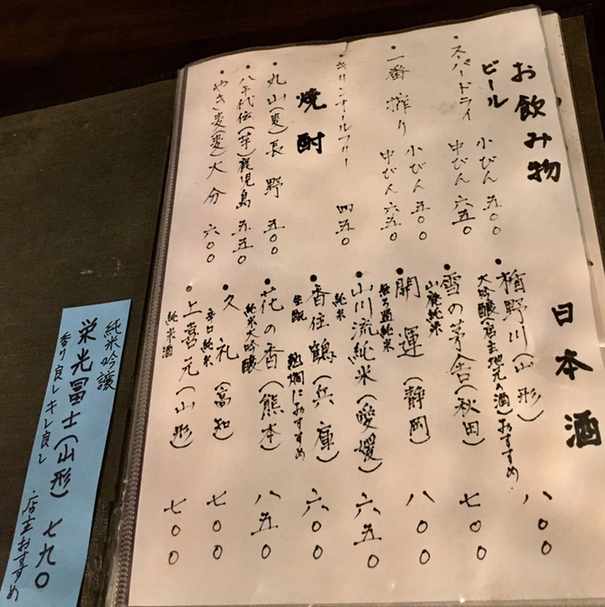 お飲み物
ビール
・スパードライ 小びん 五〇〇
中びん 六五〇
・一番搾り 小びん 五〇〇
中びん 六五〇
・キリンオールフリー 四五〇
焼酎
・丸山(麦)長野 五〇〇
・八千代伝(芋)鹿児島 五五〇
・やき麦(麦)大分 六〇〇
日本酒
・楯野川(山形) 八〇〇
大吟醸(店主地元の酒)おすすめ
・雪の茅舎(秋田) 七〇〇
山廃純米
・開運(静岡) 八〇〇
純米
・山川流純米(愛媛) 六五〇
純米
・香住鶴(兵庫) 六〇〇
生酛 熱燗におすすめ
・花の香(熊本) 八五〇
純米大吟醸
・久礼(高知) 七〇〇
辛口純米
・上喜元(山形) 七〇〇
純米酒
純米吟醸
栄光冨士(山形) 七九〇
香り良しキレ良し 店主おすすめ